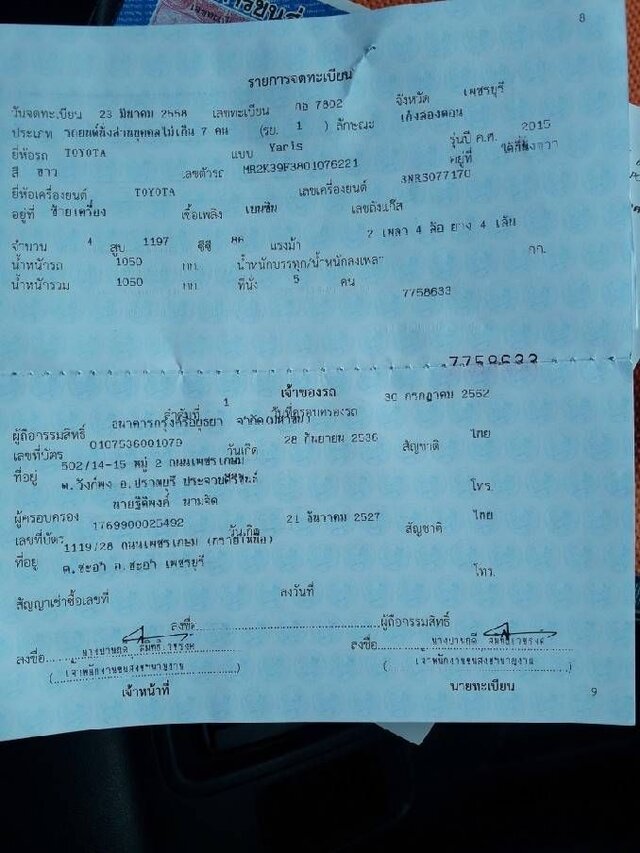 8
รายการจดทะเบียน
วันจดทะเบียน 23 มีนาคม 2558 เลขทะเบียน กอ 7302 จังหวัด เพชรบุรี
ประเภท รถยนต์นั่งส่วนบุคคลไม่เกิน 7 คน (รย. 1 ) ลักษณะ เก๋งสองตอน
ยี่ห้อรถ TOYOTA แบบ Yaris รุ่นปี ค.ศ. 2015
สี ขาว เลขตัวรถ MR2K39F3801076221 อยู่ที่ ใต้ที่นั่งขวา
ยี่ห้อเครื่องยนต์ TOYOTA เลขเครื่องยนต์ 3NRS077170
อยู่ที่ ซ้ายเครื่อง เชื้อเพลิง เบนซิน เลขถังแก๊ส
จำนวน 4 สูบ 1197 ซีซี 86 แรงม้า 2 เพลา 4 ล้อ ยาง 4 เส้น
น้ำหนักรถ 1050 กก. น้ำหนักบรรทุก/น้ำหนักลงเพลา กก.
น้ำหนักรวม 1050 กก. ที่นั่ง 5 คน
7758633
7758633
เจ้าของรถ
ลำดับที่ 1 วันที่ครอบครองรถ 30 กรกฎาคม 2562
ผู้ถือกรรมสิทธิ์ ธนาคารกรุงศรีอยุธยา จำกัด (มหาชน)
เลขที่บัตร 0107536001079 วันเกิด 28 กันยายน 2536 สัญชาติ ไทย
ที่อยู่ 502/14-15 หมู่ 2 ถนนเพชรเกษม
ต.วังก์พง อ.ปราณบุรี ประจวบคีรีขันธ์ โทร.
ผู้ครอบครอง นามจิต
เลขที่บัตร 1769900025492 วันเกิด 21 ธันวาคม 2527 สัญชาติ ไทย
ที่อยู่ 1119/28 ถนนเพชรเกษม
ต.ชะอำ อ.ชะอำ เพชรบุรี โทร.
สัญญาเช่าซื้อเลขที่ ลงวันที่
ลงชื่อ ผู้ถือกรรมสิทธิ์
ลงชื่อ ลงชื่อ
(เจ้าพนักงานขนส่งชำนาญงาน) (เจ้าพนักงานขนส่งชำนาญงาน)
เจ้าหน้าที่ นายทะเบียน
9